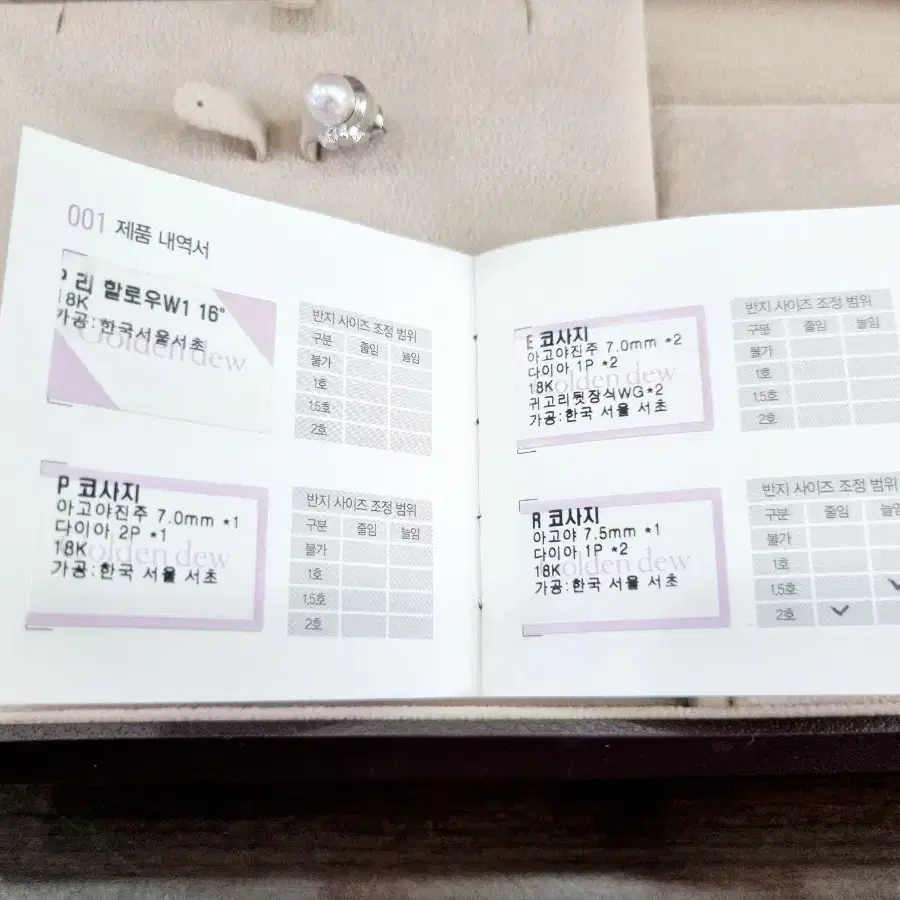 001 제품 내역서
P 리 할로우W1 16"
18K
가공:한국서울서초
Golden dew
반지 사이즈 조정 범위
구분 줄임 늘임
불가
1호
1.5호
2호
P 코사지
아고야진주 7.0mm *1
다이아 2P *1
18K
Golden dew
가공:한국 서울 서초
반지 사이즈 조정 범위
구분 줄임 늘임
불가
1호
1.5호
2호
E 코사지
아고야진주 7.0mm *2
다이아 1P *2
18K
Golden dew
귀고리뒷장식WG*2
가공:한국 서울 서초
반지 사이즈 조정 범위
구분 줄임 늘임
불가
1호
1.5호
2호
R 코사지
아고야 7.5mm *1
다이아 1P *2
18K
Golden dew
가공:한국 서울 서초
반지 사이즈 조정 범위
구분 줄임 늘임
불가
1호
1.5호
2호